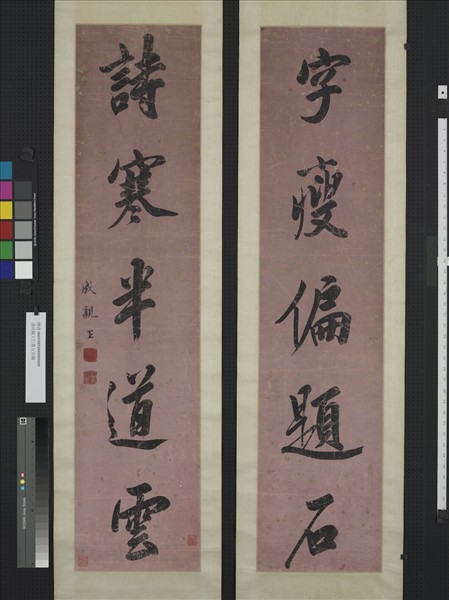 字瘦偏題石
詩寒半道雲
成親王